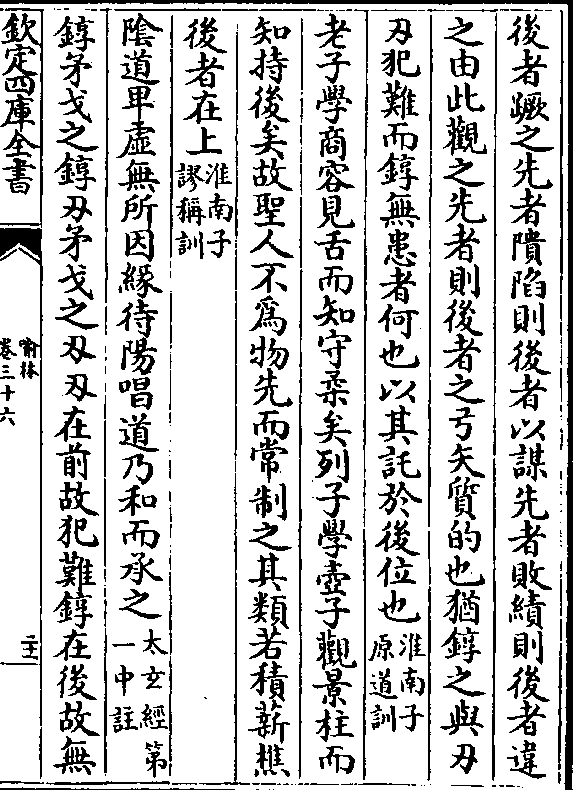 後者蹶之先者隤陷則後者以謀先者敗績則後者違
之由此觀之先者則後者之弓矢質的也猶錞之與刃
刃犯難而錞無患者何也以其託於後位也淮南子原道訓
老子學商容見舌而知守柔矣列子學壺子觀景柱而
知持後矣故聖人不為物先而常制之其類若積薪樵
後者在上淮南子謬稱訓
陰道卑虛無所因緣待陽唱道乃和而承之太玄經第一中註
錞矛戈之錞刃矛戈之刃刃在前故犯難錞在後故無
欽定四庫全書
喻林
卷三十六